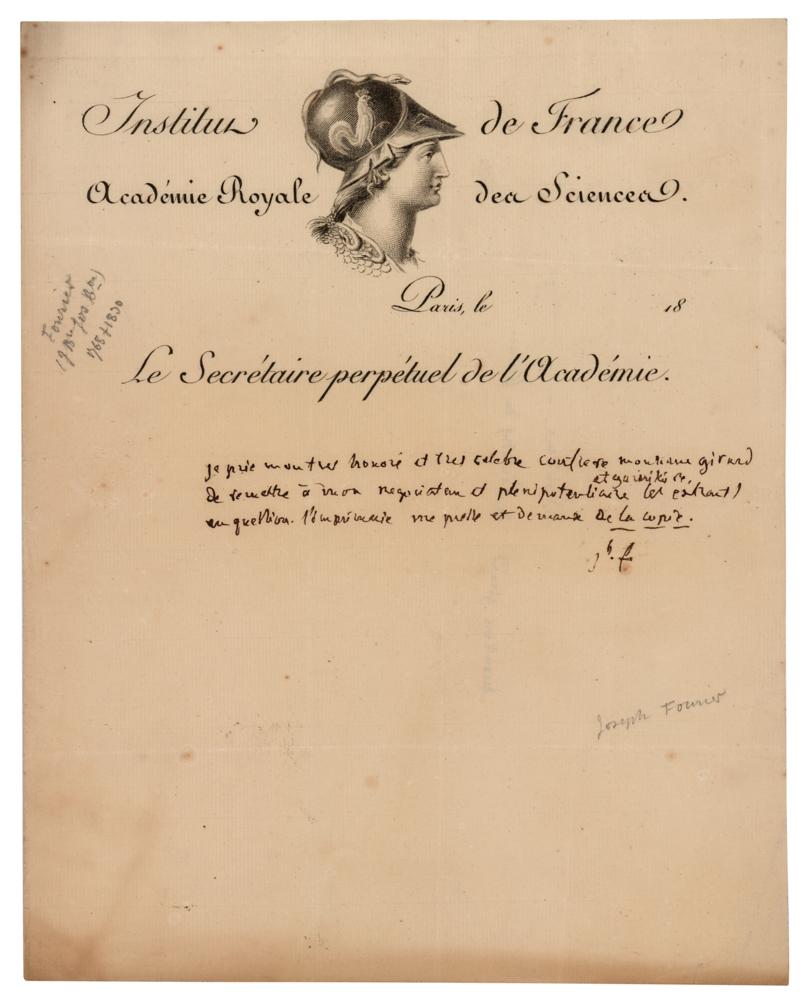 Institut de France
Académie Royale des Sciences.
Paris, le 18
Le Secrétaire perpétuel de l'Académie.
je prie mon tres honoré et tres celebre confrere monsieur girard
de remettre à mon negociateur et plenipotentiaire les extraits
en question. l'imprimerie me presse et demande de la copie.
jh. f
Joseph Fourier
Fourier
(Jn Bn Jos Bon)
1768 + 1830